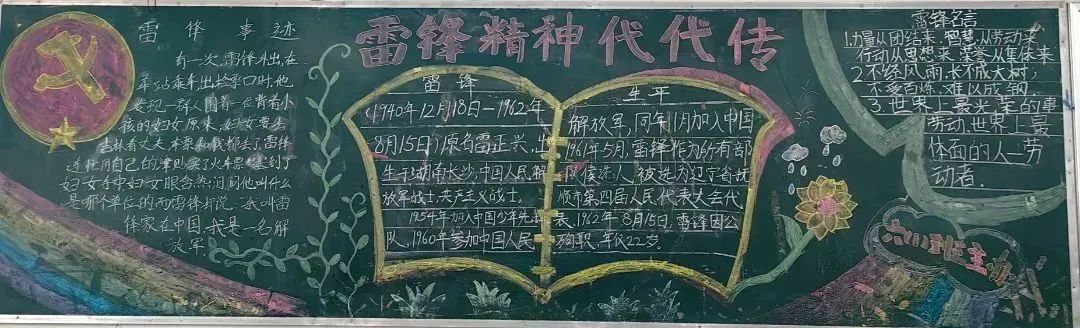 雷锋精神代代传
雷锋事迹
有一次,雷锋外出,在
车站乘车出检票口时,他
发现一群人围着一位背着小
孩的妇女原来,妇女要去
吉林看丈夫,车票和钱都丢了雷锋
连忙用自己的津贴买了火车票塞到了
妇女手中妇女眼含热泪,问他叫什么
是哪个单位的而雷锋却说:我叫雷
锋家在中国,我是一名解
放军
雷锋
(1940年12月18日—1962年
8月15日)原名雷正兴,出
生于湖南长沙,中国人民解
放军战士,共产主义战士。
1954年加入中国少年先锋
队,1960年参加中国人民
生平
解放军,同年11月加入中国
1961年5月,雷锋作为所有部
队候选人,被选为辽宁省抚
顺市第四届人民代表大会代
表,1962年8月15日,雷锋因公
殉职,年仅22岁。
雷锋名言
1.力量从团结来,智慧从劳动来
行动从思想来,荣誉从集体来
2.不经风雨,长不成大树;
不受百炼,难以成钢
3.世界上最光荣的事
劳动,世界上最
体面的人—劳
动者.
六(1)班主办